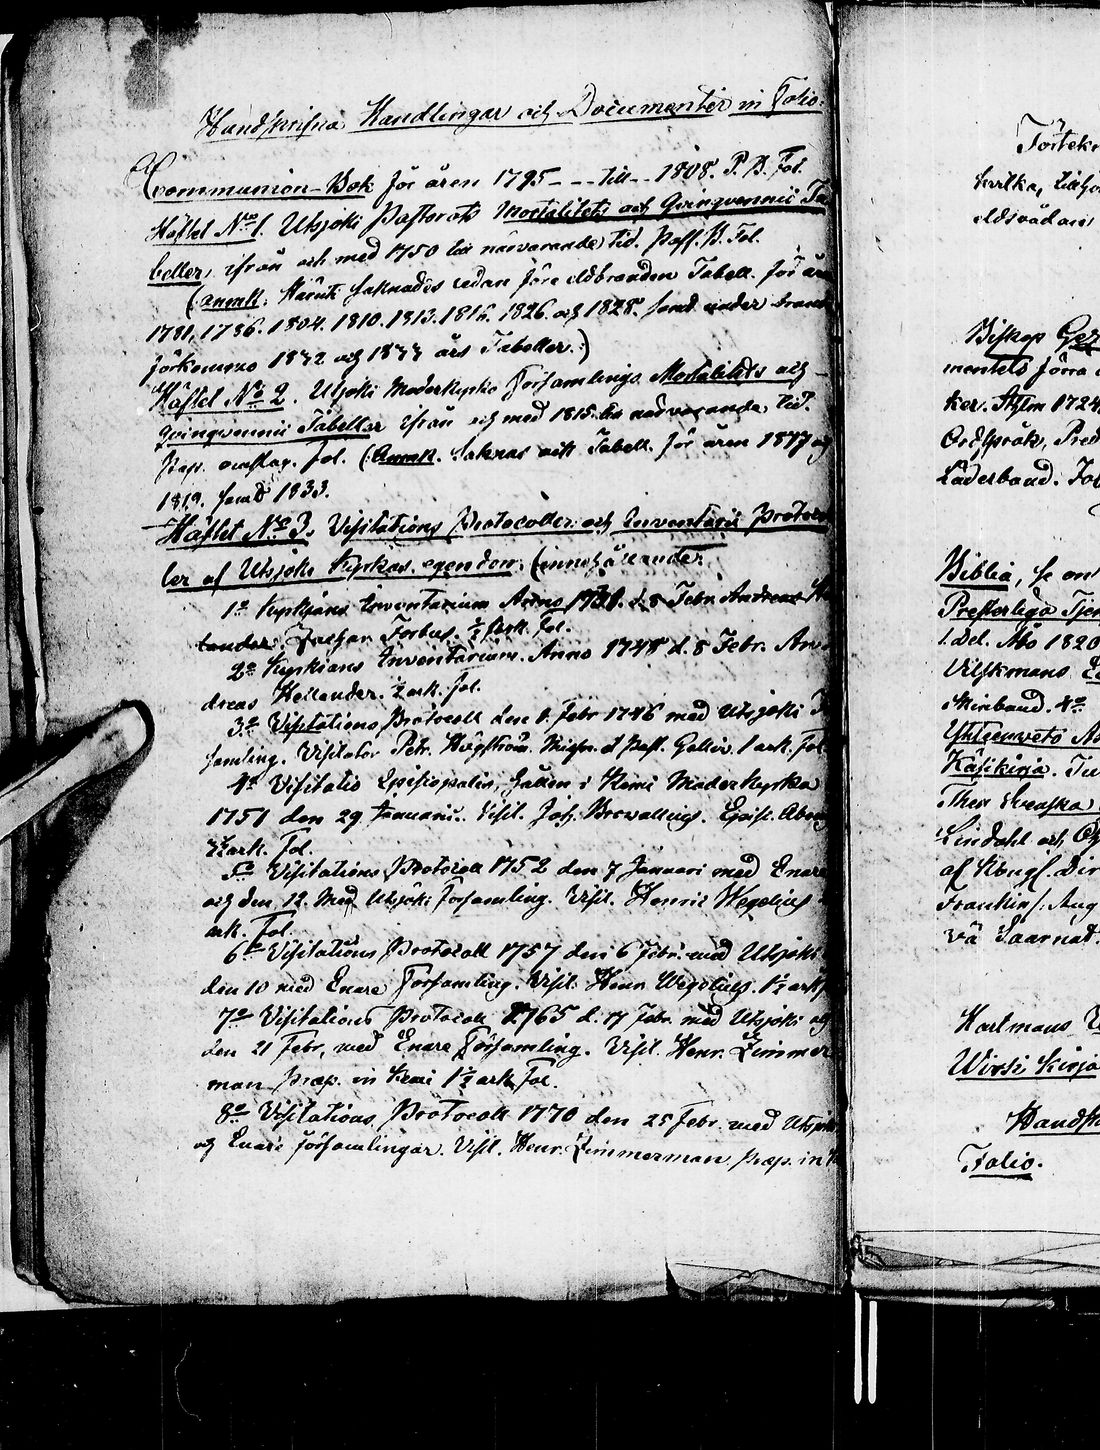 Handskrifna Handlingar och Documenter in Folio.
Communion-Bok för åren 1795 - - - till - - 1808. P. B. Fol.
Häftet No 1. Utsjoki Pastorats Mortalitets och Qvinqvennii Ta
beller, ifrån och med 1750 till närvarande tid. Papp. B. Fol.
(Anmk: Häruti saknades redan före eldbranden Tabell. för åren
1781, 1786. 1804. 1810. 1813. 1816. 1826. och 1828. samt under
förkommo 1832 och 1833 års Tabeller.)
Häftet No 2. Utsjoki Moderkyrko Församlings Mortalitets och
Qvinqvennii Tabeller ifrån och med 1815 till närvarande tid.
Pap. omslag. fol. (Anmk. Saknas ock Tabell. för åren 1817 og
1819. samt 1833.
Häftet No 3. Visitations Protocoller och Inventarii Protocol
ler af Utsjoki Kyrkas egendom; (innehållande:
1o Kyrkjans Inventarium Anno 1741. d. 8 Febr. Andreas He
lander. Zachar. Forbus. ½ ark. fol.
2o Kyrkians Inventarium. Anno 1748 d. 8 Febr. An
dreas Hellander. ½ ark. fol.
3o Visitations Protocoll den 8. Febr 1746 med Utsjoki F
samling. Visitator Petr. Högström. Mission. et Past. Gelliv. 1 ark. fol.
4o Visitatio Episcopalis, hållen i Kemi Moderkyrka
1751 den 29 Januarii. Visit. Joh. Browallius. Episc. Aboen
ark. fol.
5o Visitations Protocoll 1752 den 7 Januari med Enare
og den 12. Med Utsjoki Församling. Visit. Henric Wegelius
ark. fol.
6o Visitations Protocoll 1757 den 6 Febr. med Utsjoki
den 10 med Enare Församling. Visit. Henr. Wegelius. 1½ ark f
7o Visitations Protocoll 1765 d. 17 Febr. med Utsjoki og
den 21 Febr. med Enare Församling. Visit. Henr. Zimmer
man Præp. in Kemi 1½ ark fol.
8o Visitations Protocoll 1770 den 25 Febr. med Utsjoki
og Enare församlingar. Visit. Henr. Zimmerman Præp. in K
Förtekn
eldsvådan
Biskop Gez
mentets förra
ker. Sthlm 1724
Ordspråk, Pred
Läderband. Fol
Biblia, se om
Presterliga Tjen
1. del. Åbo 1820
Vilskmans
Skinband. 4o
Yhteenveto
Käsikirja. Tu
Then Svenska
Lindahl och
af Kongl. Dir
Franckins. Aug
vä Saarnat.
Hartmans
Wirsi Kirja
Handsk
Folio.